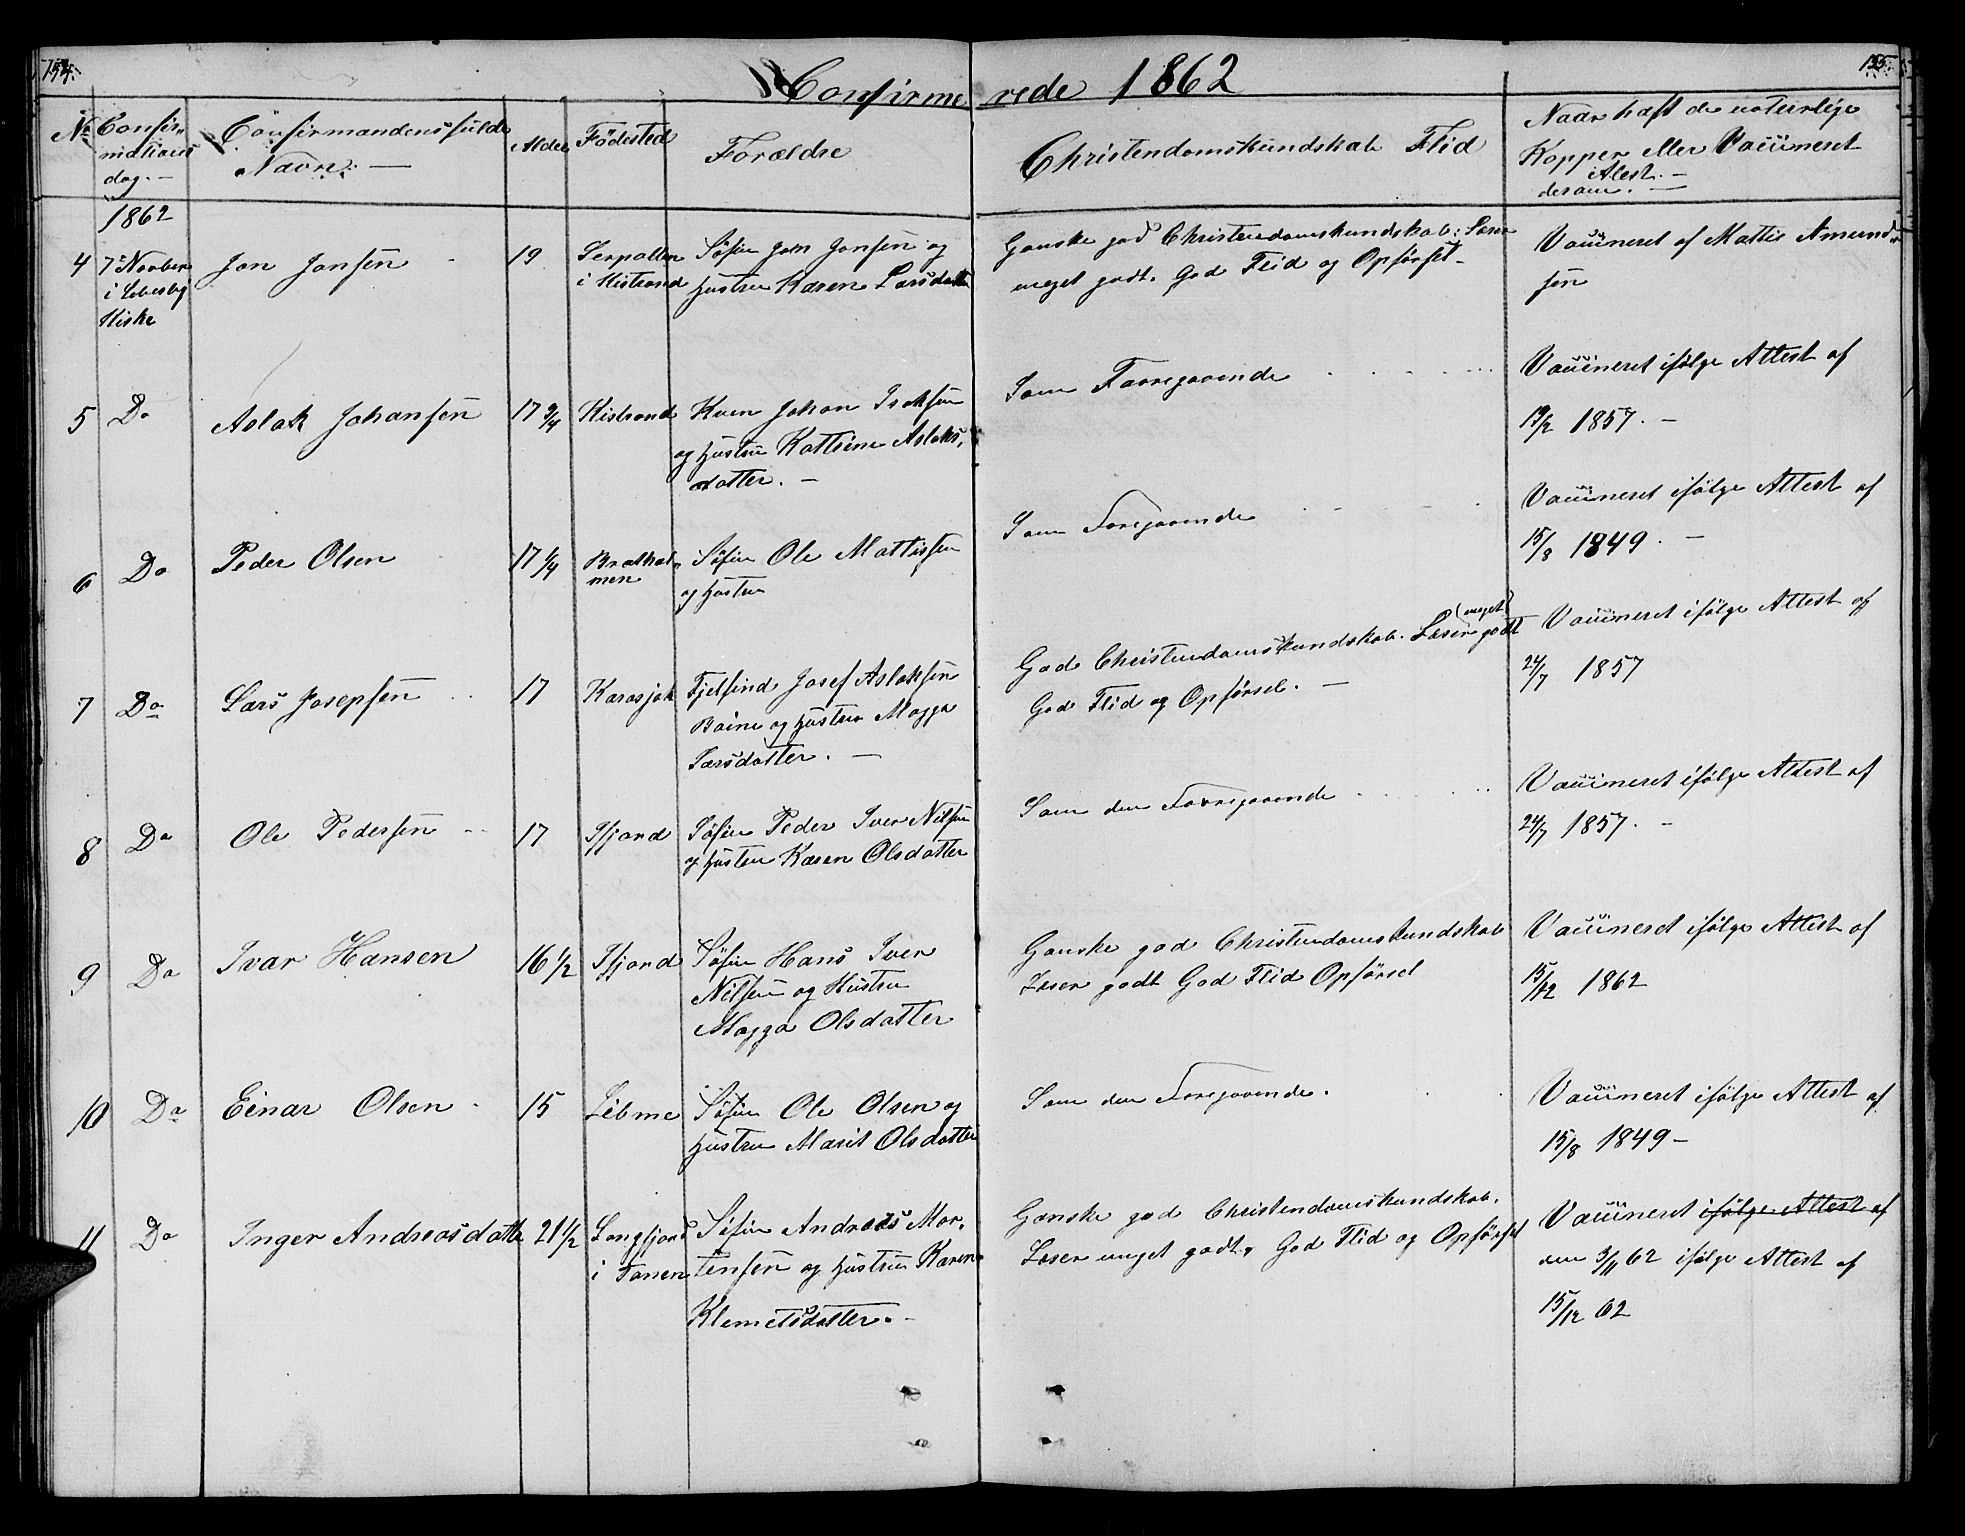 154.
Confirmerede 1862
155.
No Confirmationsdag. — Confirmandens fulde Navn. — Alder Födested Forældre Christendomskundskab Flid Naar haft de naturlige Kopper eller Vaccineret Atest. — desom. —
1862
4 7de Novber i Lebesby Kirke
Jon Jonsen
19
Serpollen i Kistrand
Söfin Jon Jonsen og
Hustru Karen Larsdatter
Ganske god Christendomskundskab: Læser
meget godt. God Flid og Opförsel-
Vaccineret af Mattis Amund-
sen
5 Do Aslak Johansen 17 3/4 Kistrand
Kven Johan Isaksen
og Hustru Kattrine Aslaks-
datter. —
Som Foregaaende
Vaccineret ifölge Attest af
19/2 1857. —
6 Do Peder Olsen 17 1/4
Brathol-
men
Söfin Ole Mattissen
og Hustru
Som Foregaaende
Vaccineret ifölge Attest af
15/8 1849. —
7 Do Lars Josepsen 17 Karasjok
Fjelfind Josef Aslaksen
Baine og Hustru Magga
Larsdatter. —
God Christendomskundskab. Læser (meget) godt
God Flid og Opförsel. —
Vaccineret ifölge Attest af
24/7 1857
8 Do Ole Pedersen 17 Ifjord
Söfin Peder Iver Nilsen
og Hustru Karen Olsdatter
Som den Foregaaende
Vaccineret ifölge Attest af
24/7 1857. —
9 Do Ivar Hansen 16 1/2 Ifjord
Söfin Hans Iver
Nilsen og Hustru
Magga Olsdatter
Ganske god Christendomskundskab
Læser godt God Flid Opförsel
Vaccineret ifölge Attest af
15/12 1862
10 Do Einar Olsen 15 Lebme
Söfin Ole Olsen og
Hustru Marit Olsdatter
Som den Foregaaende.
Vaccineret ifölge Attest af
15/8 1849 —
11 Do Inger Andreasdatte 21 1/2
Langfjord
i Tanen
Söfin Andreas Mor-
tensen og Hustru Karen
Klemetsdatter. —
Ganske god Christendomskundskab.
Læser meget godt. God Flid og Opförsel
Vaccineret ifölge Attest af
den 3/11 62 ifölge Attest af
15/12 62